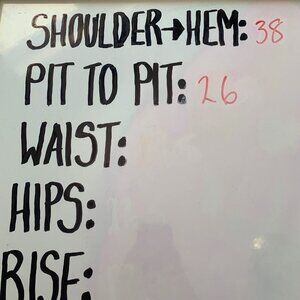 SHOULDER→HEM: 38
PIT TO PIT: 26
WAIST:
HIPS:
RISE: